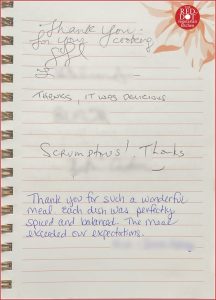 Thank you
for your cooking
RED BOX
THANKS, IT WAS DELICIOUS
Scrumptious! Thanks
Thank you for such a wonderful
meal. Each dish was perfectly
spiced and balanced. The meal
exceeded our expectations.